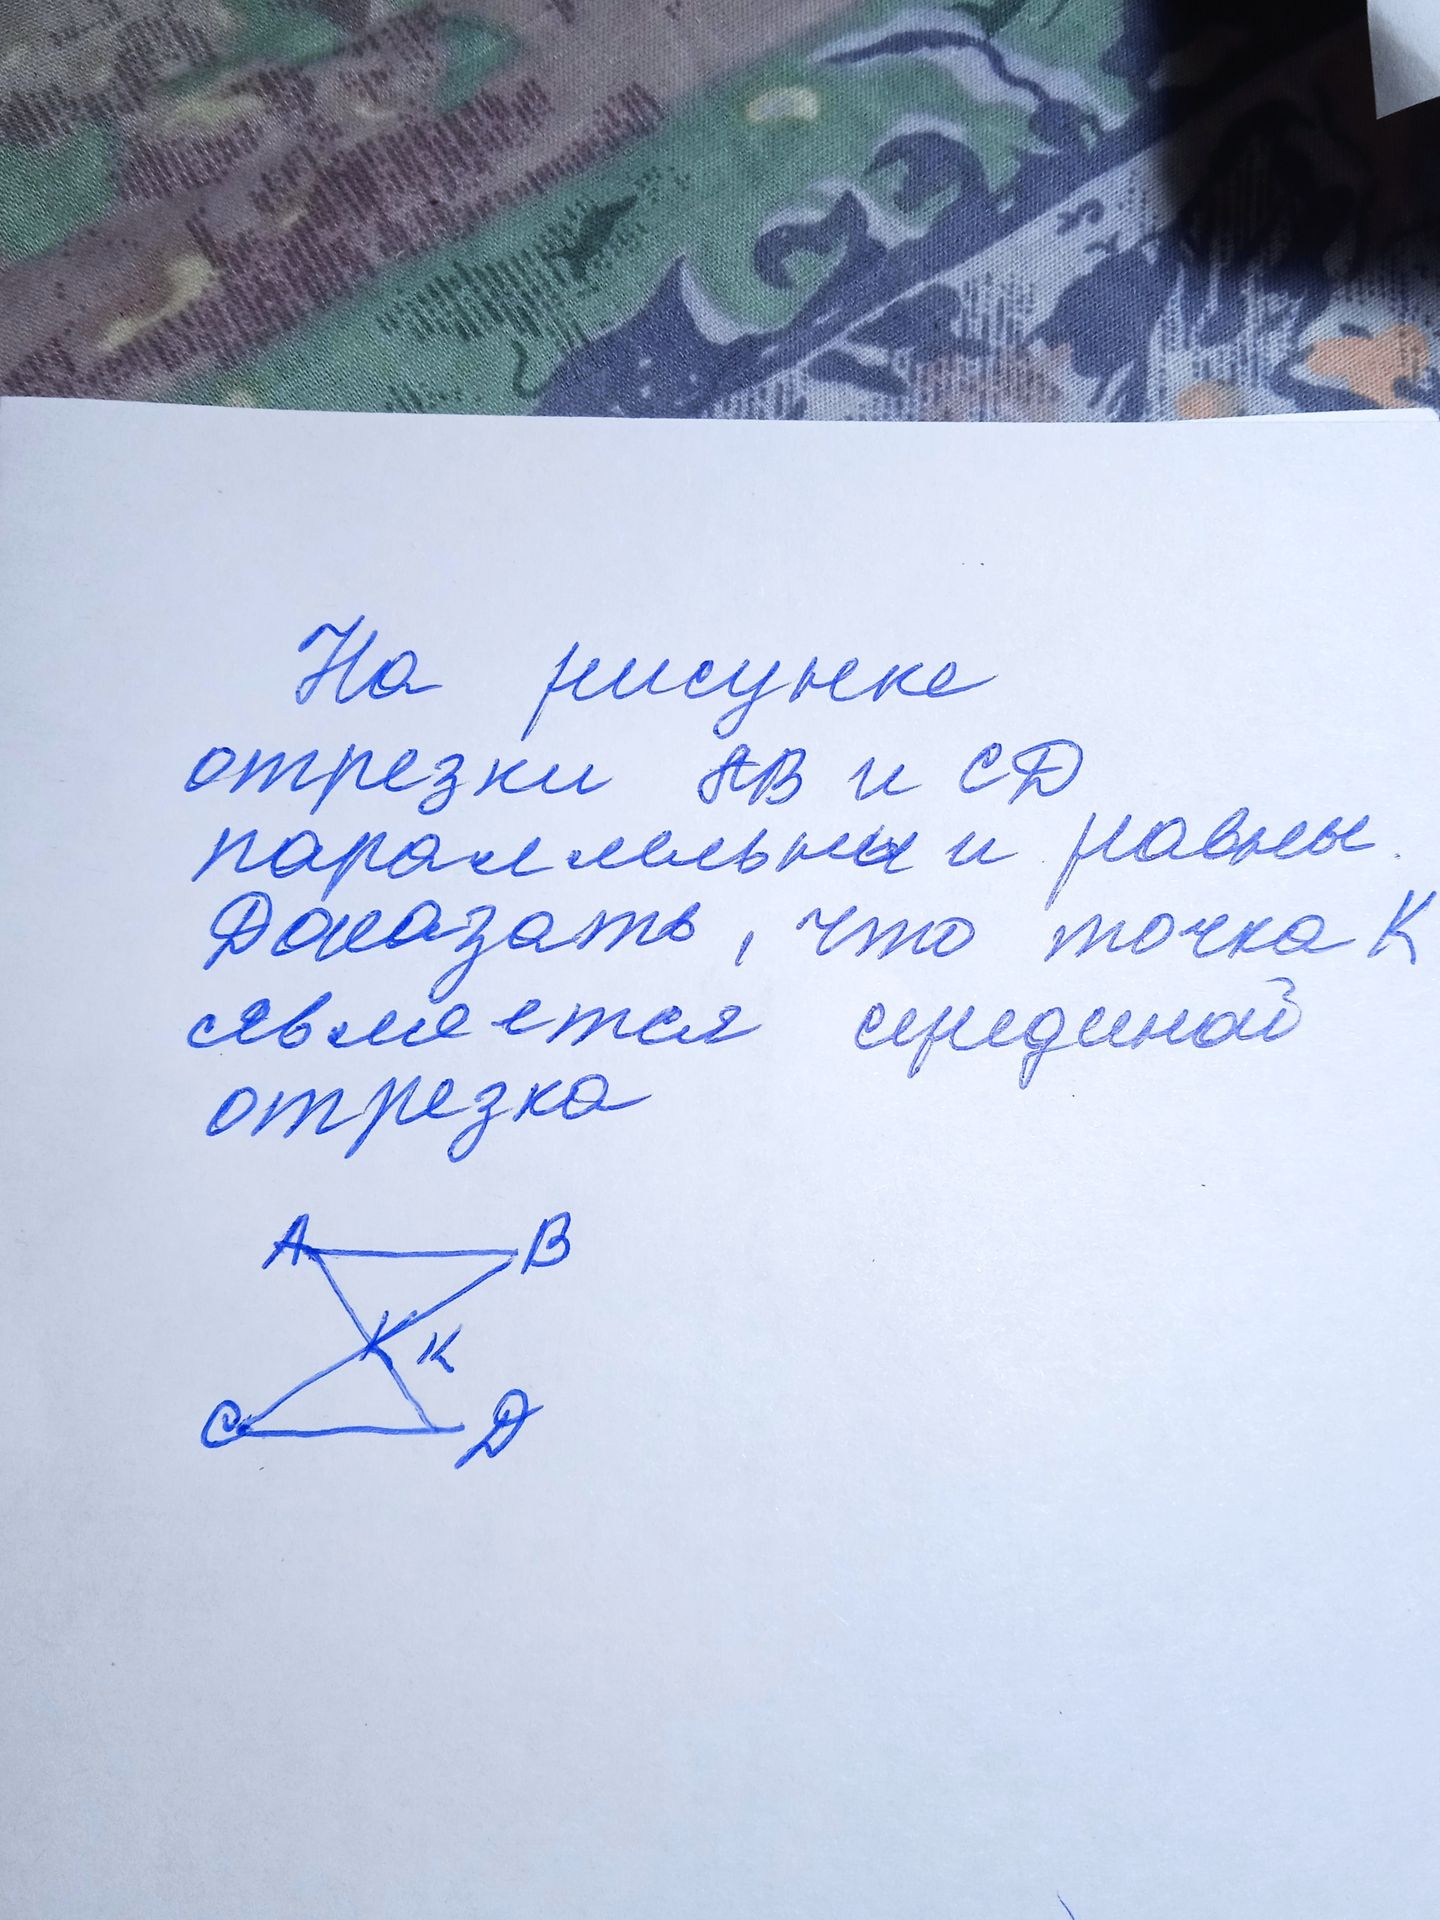 На рисунке
отрезки АВ и СD
параллельны и равны.
Доказать, что точка К
является серединой
отрезка
А В
К
С D